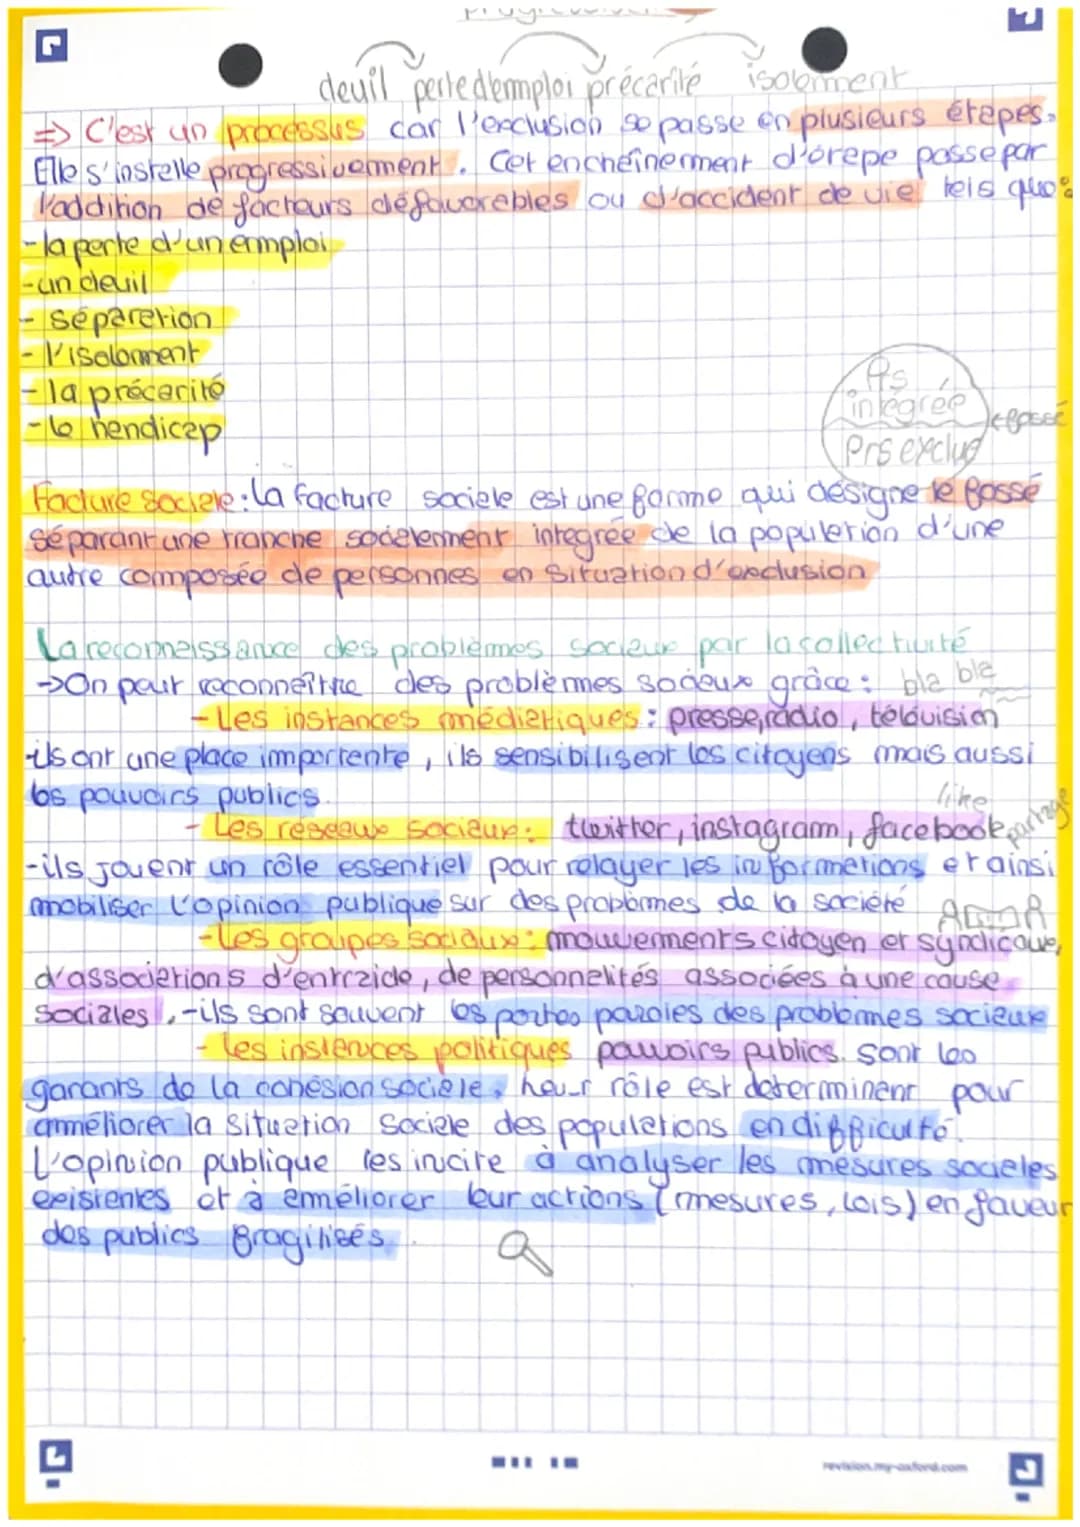 deuil perte d'emploi précarité isolement
=> C'est un processus car l'exclusion se passe en plusieurs étapes.
Elle s'installe progressivement. Cet enchaînement d'étape passe par
l'addition de facteurs défavorables ou d'accident de vie tels que :
- la perte d'un emploi
- un deuil
- séparation
- l'isolement
- la précarité
- le handicap
Prs
intégrée
Prs exclue
← fossé
Facture sociale : la facture sociale est une forme qui désigne le fossé
séparant une tranche socialement intégrée de la population d'une
autre composée de personnes en situation d'exclusion
La reconnaissance des problèmes sociaux par la collectivité
→ On peut reconnaître des problèmes sociaux grâce : bla bla
- Les instances médiatiques : presse, radio, télévision
- ils ont une place importante, ils sensibilisent les citoyens mais aussi
les pouvoirs publics.
like
partage
- Les réseaux sociaux : twitter, instagram, facebook
- ils jouent un rôle essentiel pour relayer les informations et ainsi
mobiliser l'opinion publique sur des problèmes de la société
- Les groupes sociaux : mouvements citoyen et syndicaux,
d'associations d'entraide, de personnalités associées à une cause
sociales, - ils sont souvent les portes paroles des problèmes sociaux
- les instances politiques pouvoirs publics. sont les
garants de la cohésion sociale. Leur rôle est determinant pour
amméliorer la situation sociale des populations en difficulté.
L'opinion publique les incite à analyser les mesures sociales
existentes et à amméliorer leur actions (mesures, lois) en faveur
des publics fragilisés.
revision.my-oxford.com